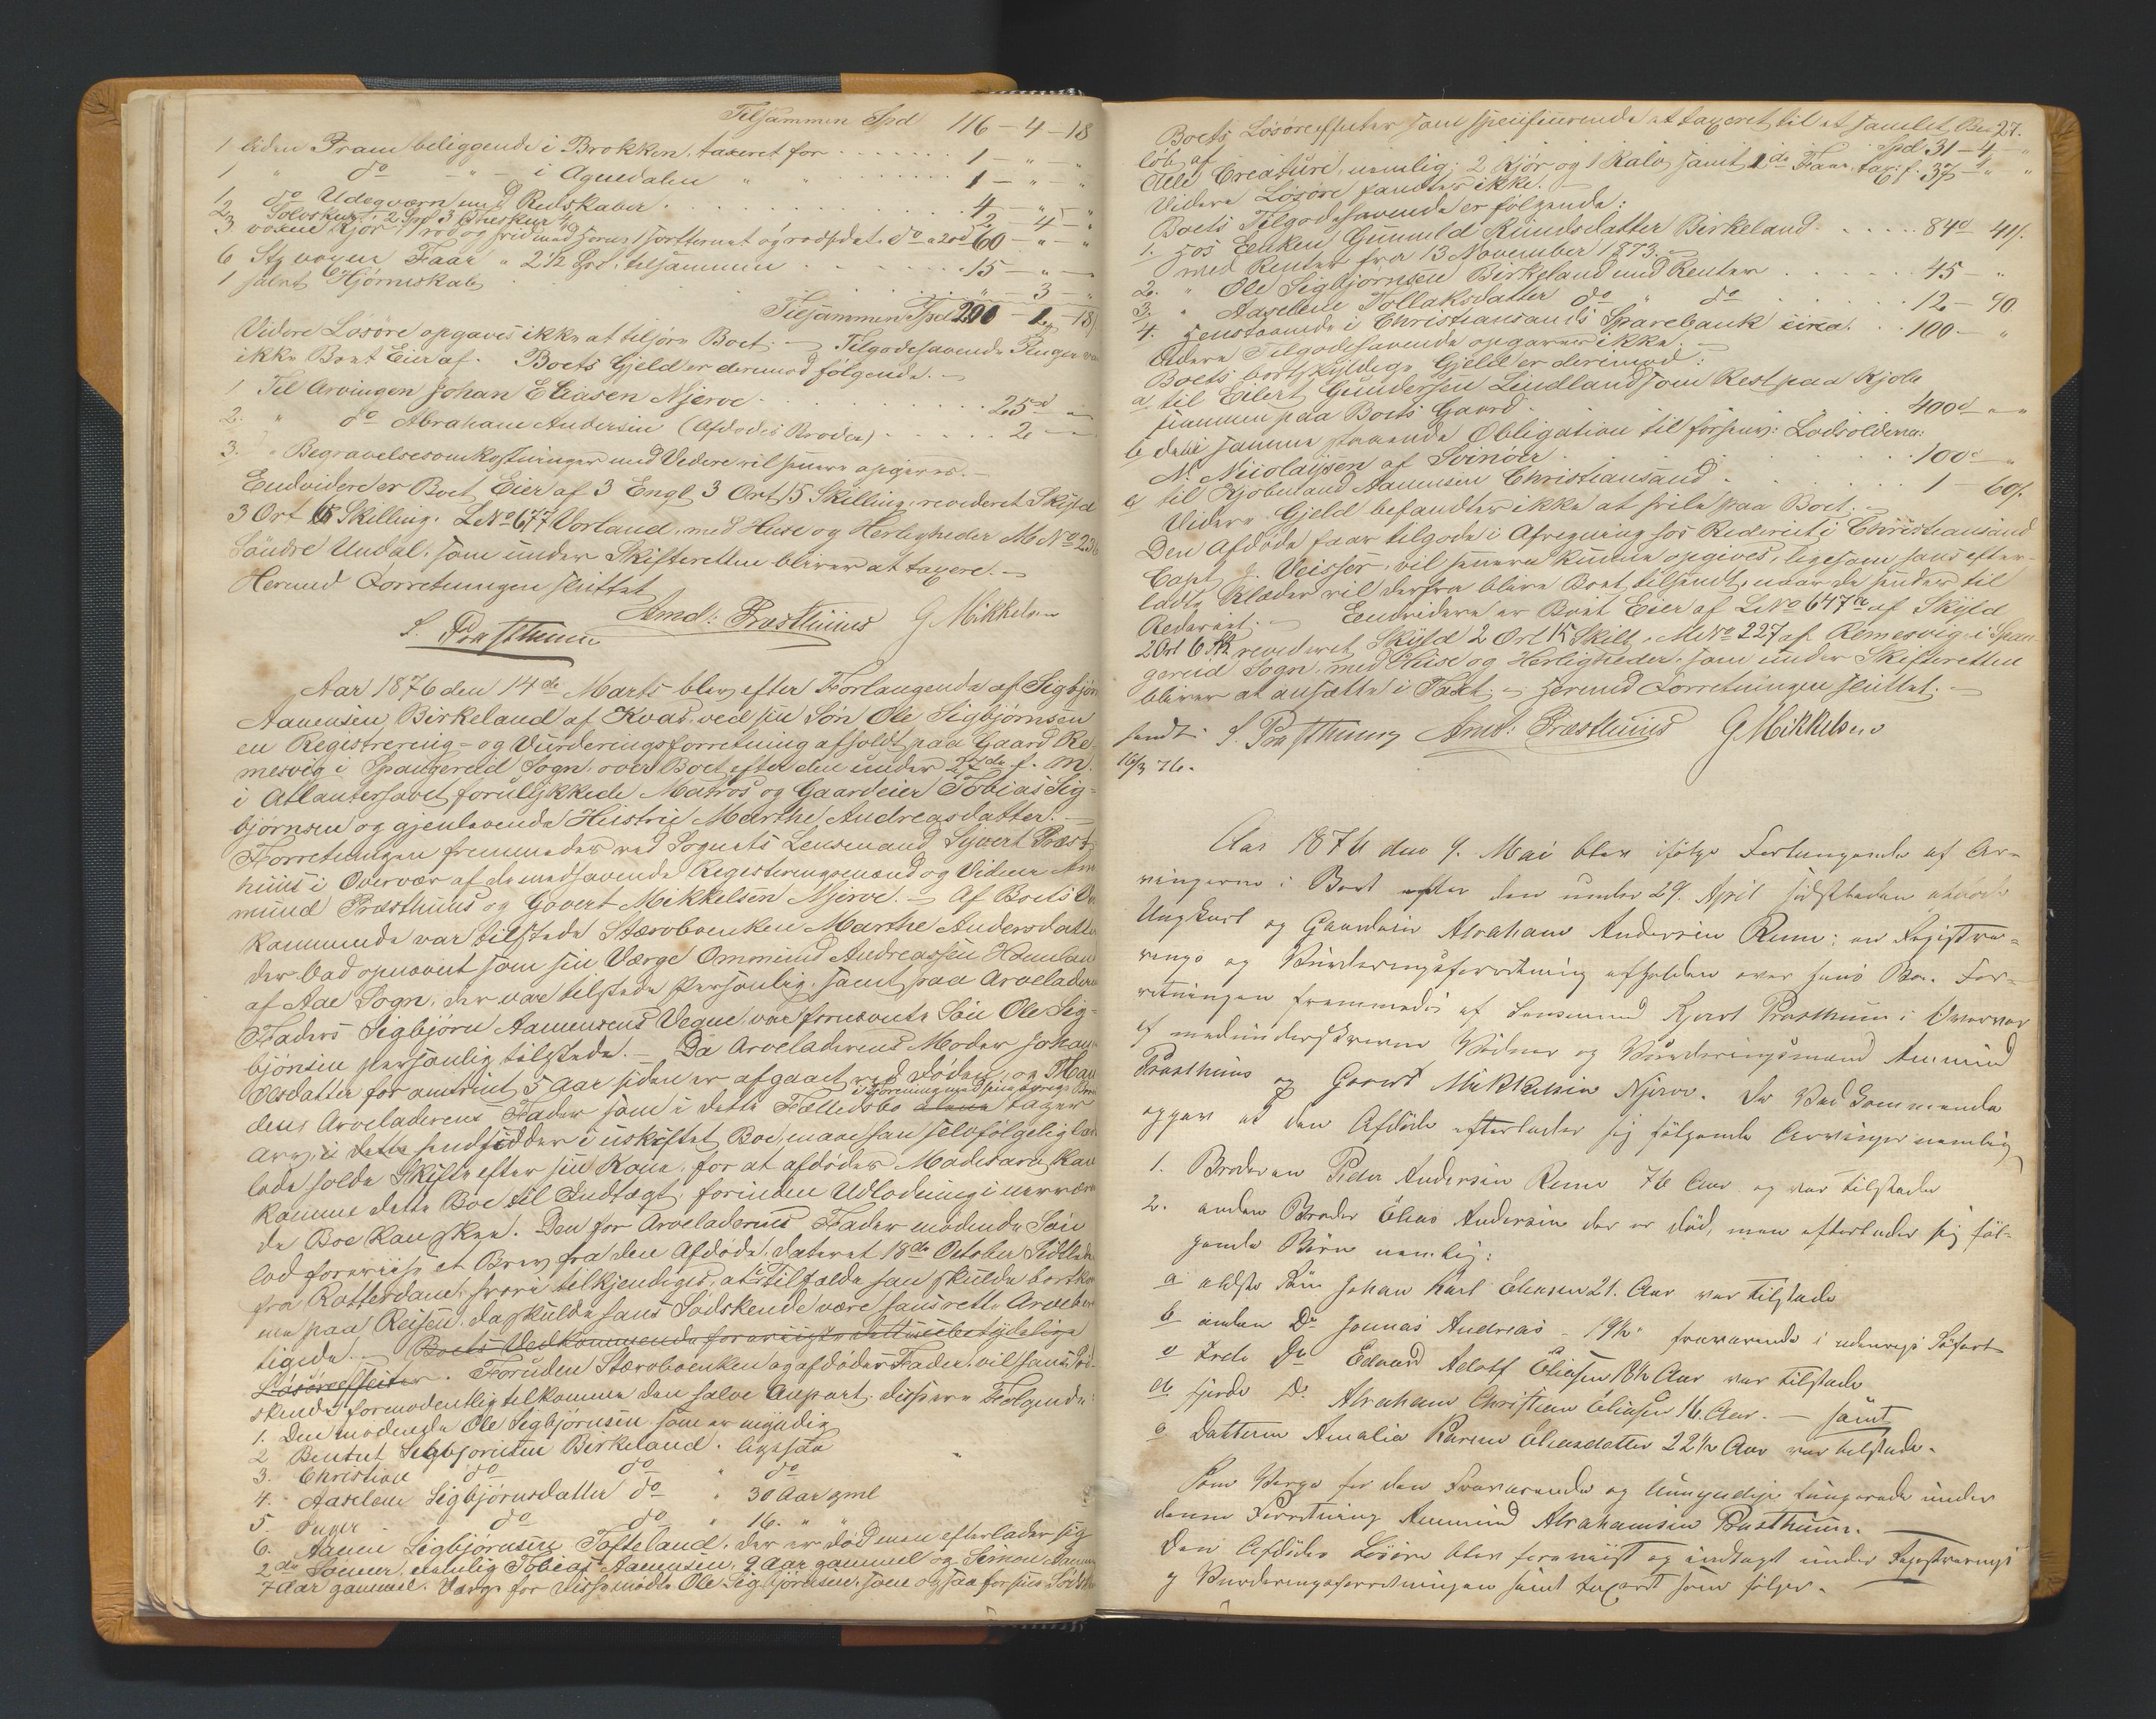 Tilsammen Spd 116-4-18
1 liden Pram beliggende i Brokken, taxeret for 1 - " - "
1 " do - " - i Agnedalen " 1 - " - "
1. do Udegværn med Redskaber 4 - " - "
2 Solvskeer, 2 Spd 3 Theskeer 4/ 2 - 4 - "
3 voxne Kjør, 1 rød og hvid med Horn, 1 sorthornet og rødsidet do a 20d 60 - " - "
6 Stz voxen Faar " 2 1/2 Spd. tilsammen 15 - " - "
1 samt Hjørneskab " - 3 - "
Tilsammen Spd 200 - 1 - 18
Videre Løsøre opgaves ikke at tilhøre Boet. - Tilgodehavende Penger var
ikke Boet Eier af. Boets Gjeld er derimod følgende. -
1 Til Arvingen Johan Eliasen Njerve 25d " "
2. " do Abraham Andersen (Afdødes Broder) 2 - "
3. " Begravelsesomkostninger med Videre vil senere opgives. -
Endvidere er Boet Eier af 3 Engl 3 Ort 15 Skilling, revideret Skyld
3 Ort 18 Skilling. L No 677 Vorland, med Huse og Herligheder M No 236
Søndre Undal, som under Skifteretten bliver at taxere. -
Hermed Forretningen sluttet
S. Præsthuus Amd: Præsthuus G Mikkelsen
Aar 1876 den 14de Marts blev efter Forlangende af Sigbjørn
Aanensen Birkeland af Kvas, ved sin Søn Ole Sigbjørnsen
en Registrering- og Vurderingsforretning afholdt paa Gaard Re-
mesvig i Spangereid Sogn, over Boet efter den under f. M.
i Atlanterhavet forulykkede Matros og Gaardeier Tobias Sig-
bjørnsen og gjenlevende Hustru Marthe Andreasdatter. -
Forretningen fremmedes ved Sognets Lensmand Syvert Præst
huus i Overvær af de medhavende Registreringsmænd og Vidner Am
mund Præsthuus og Govert Mikkelsen Njerve. - Af Boets Ved
kommende var tilstede Stervboenken Marthe Andersdatter
der bad opnævnt som sin Værge Ommund Andreassen Homlan
af Aae Sogn, der var tilstede personlig, samt paa Arveladerens
Faders Sigbjørn Aanensens Vegne, var fornævnte Søn Ole Sig-
bjørnsen personlig tilstede. - Da Arveladerens Moder Johan
Olsdatter for omtrent 5 Aar siden er afgaaet ved Døden, og Man
den, Arveladerens Fader som i dette Fællesbo alene tager
i Forening med sine øvrige Børn
Arv, i dette hensidder i uskiftet Boe, maae han selvfølgelig lade
lade holde Skifte efter sin Kone, for at afdødes Mødrearv kan
komme dette Boe til Indtægt, forinden Udlodning i nærværen
de Boe kan skee. Den for Arveladerens Fader mødende Søn
lod forevise et Brev fra den Afdøde, dateret 18de October Sidstleden
fra Rotterdam, hvori tilkjendiges, at i Tilfælde han skulde bortkom
me paa Reisen, da skulde hans Sødskende være hans rette Arvebe
tigede. - Boets Vedkommende foreviiste dettes ubetydelige
Løsøreeffecter. Foruden Stervboenken og afdødes Fader, vil hans Sød-
skende formodentlig tilkomme den halve Anpart, disse ere Følgende:
1. Den mødende Ole Sigbjørnsen som er myndig
2 Berntet Sigbjørnsen Birkeland, ligesaa
3. Christian do do " do
4. Aaselene Sigbjørnsdatter do " 30 Aar gml
5. Inger do do " 16. " "
6. Aanen Sigbjørnsen Tofteland, der er død men efterlader sig
2de Sønner, nemlig Tobias Aanensen, 9 Aar gammel og Simon Aanens
7 Aar gammel. Værge for disse mødte Ole Sigbjørnsen, som ogsaa for sine Sødsk
27.
Boets Løsøreeffecter som specificerende at taxeret til et samlet Be-
løb af Spd 31-4-"
Alle Creature, nemlig: 2 Kjør og 1 Kalv samt 1 do Faar, tax: f. 37 - " "
Videre Løsøre fandtes ikke. -
Boets Tilgodehavende er følgende:
1. Hos Enken Gunnuld Rundsdatter Birkeland 84d 4/.
med Renter fra 13 November 1873. -
2. " Ole Sigbjørnsen Birkeland med Renter 45 - "
3. " Aaselene Tollaksdatter do " do 12 - 90
4. Henstaaende i Christiansands Sparebank circa 100. "
Videre Tilgodehavende opgaves ikke. -
Boets bortskyldige Gjeld er derimod:
a til Eilert Gundersen Lindland som Rest paa Kjøbe
summen paa Boets Gaard 400d " "
b den i samme staaende Obligation til forhenv: Lodsolderm:
N. Nicolaysen af Svinøer 100d "
c til Kjøbmand Aanensen Christiansand 1 - 60/.
Videre Gjeld befandtes ikke at hvile paa Boet. -
Den Afdøde faar tilgode i Afregning hos Rederiet i Christiansand
Capt J. Reisser, vil senere kunne opgives, ligesom hans efter-
ladte Klæder vil derfra blive Boet tilsendt, naar de sendes til
Rederiet. - Endvidere er Boet Eier af L No 647a af Skyld
2 Ort 6 Sk revideret Skyld 2 Ort 15 Skill, M No 227 af Remesvig i Span-
gereid Sogn, med Huse og Herligheder, som under Skifteretten
bliver at ansætte i Taxt. - Hermed Forretningen sluttet. -
sendt S. Præsthuus Amd: Præsthuus G Mikkelsen
16/3 76.
Aar 1876 den 9. Mai blev ifølge Forlangende af Ar-
vingerne i Boet efter den under 29. April sidstleden afdøde
Ungkarl og Gaardeier Abraham Andersen Rum: en Registre-
rings og Vurderingsforretning afholden over hans Bo. For-
retningen fremmedes af Lensmand Syvert Præsthuus i Overvær
af medunderskrevne Vidner og Vurderingsmænd Ammund
Præsthuus og Govert Mikkelsen Njerve. De Vedkommende
opgav at den Afdøde efterlader sig følgende Arvinger nemlig
1. Broderen Peder Andersen Rum 76 Aar og var tilstede
2. anden Broder Elias Andersen der er død, men efterlader sig føl-
gende Børn nemlig:
a ældste Søn Johan Karl Eliasen 21. Aar var tilstede
b anden Do Jonnas Andreas - 19 1/2 fraværende i udenrigs Søfart
c tredie Do Edvard Adolf Eliasen 18 1/2 Aar var tilstede
d fjerde Do Abraham Christian Eliasen 16. Aar. - samt
e Datteren Amalia Karine Eliasdatter 22 1/2 Aar var tilstede.
Som Værge for den Fraværende og Umyndige fungerede under
denne Forretning Ammund Abrahamsen Præsthuus.
Den Afdødes Løsøre blev foreviist og indtaget under Registrerings
og Vurderingsforretningen samt taxeret som følger.